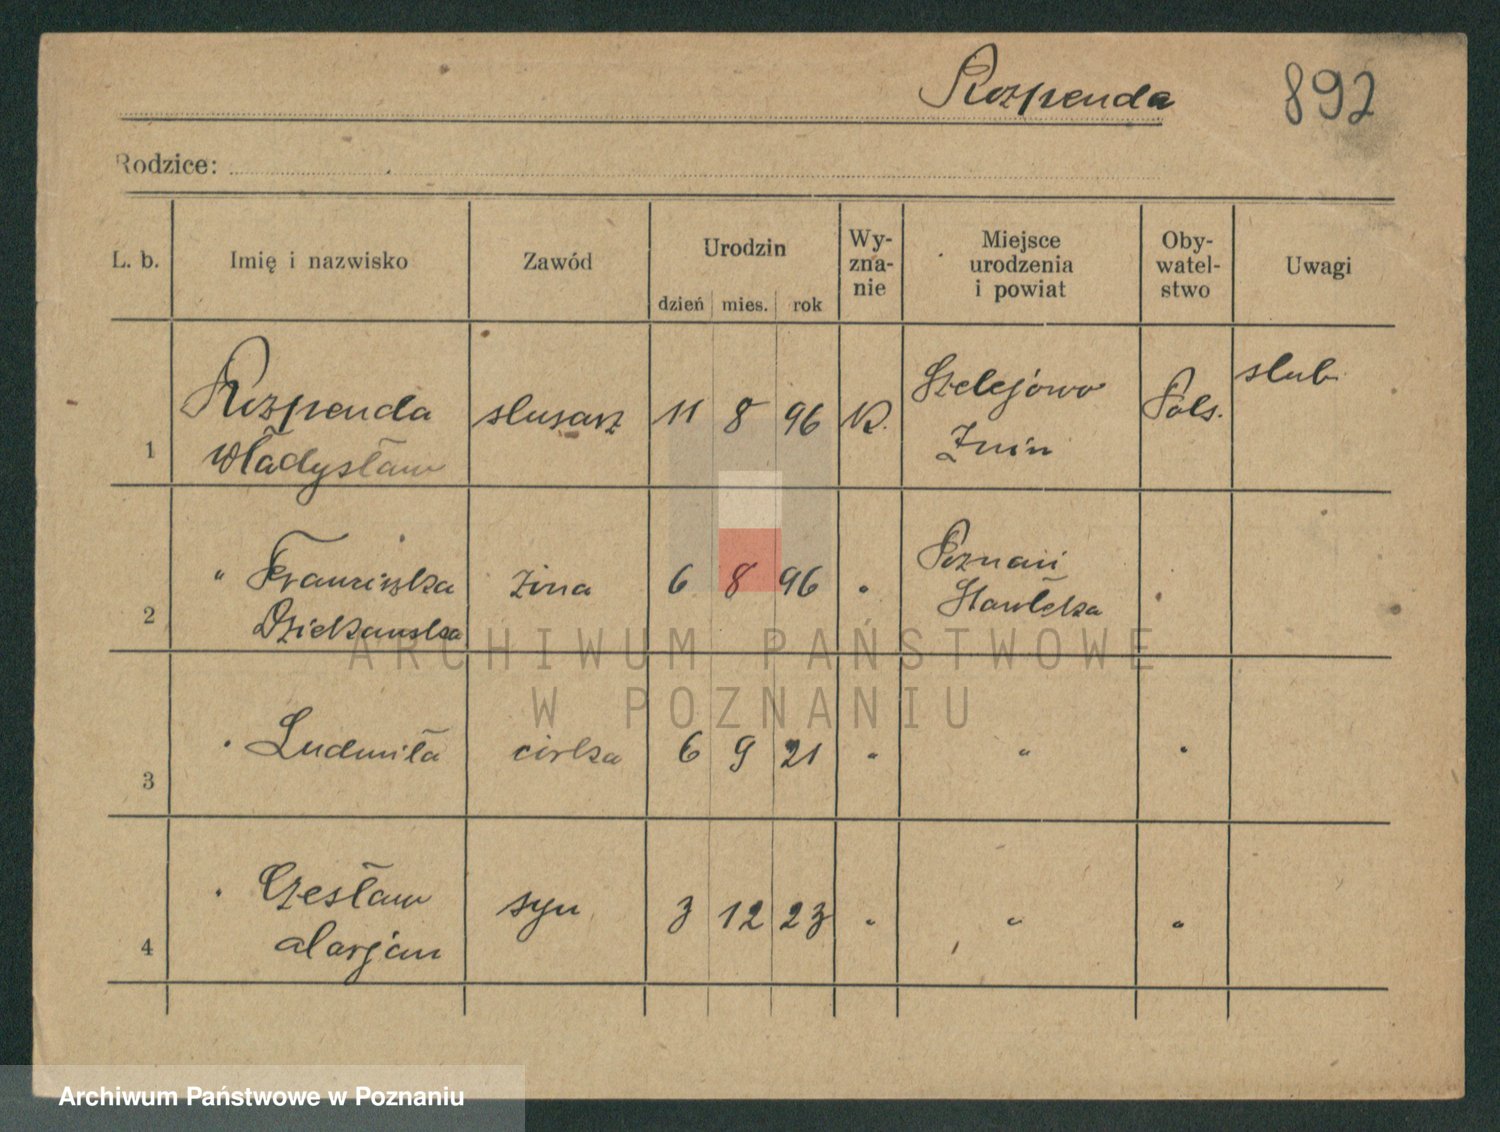 Rozpenda 892
Rodzice:
L. b. Imię i nazwisko Zawód Urodzin dzień mies. rok Wy-zna-nie Miejsce urodzenia i powiat Oby-watel-stwo Uwagi
1 Rozpenda Władysław slusarz 11 8 96 K. Szelejowo Znin Pols. slub
2 " Franciszka Dziekanska żina 6 8 96 " Poznań "
3 " Ludmiła cirka 6 9 21 " " "
4 " Czesław Marjan syn 3 12 23 " " "
ARCHIWUM PAŃSTWOWE
W POZNANIU
Archiwum Państwowe w Poznaniu